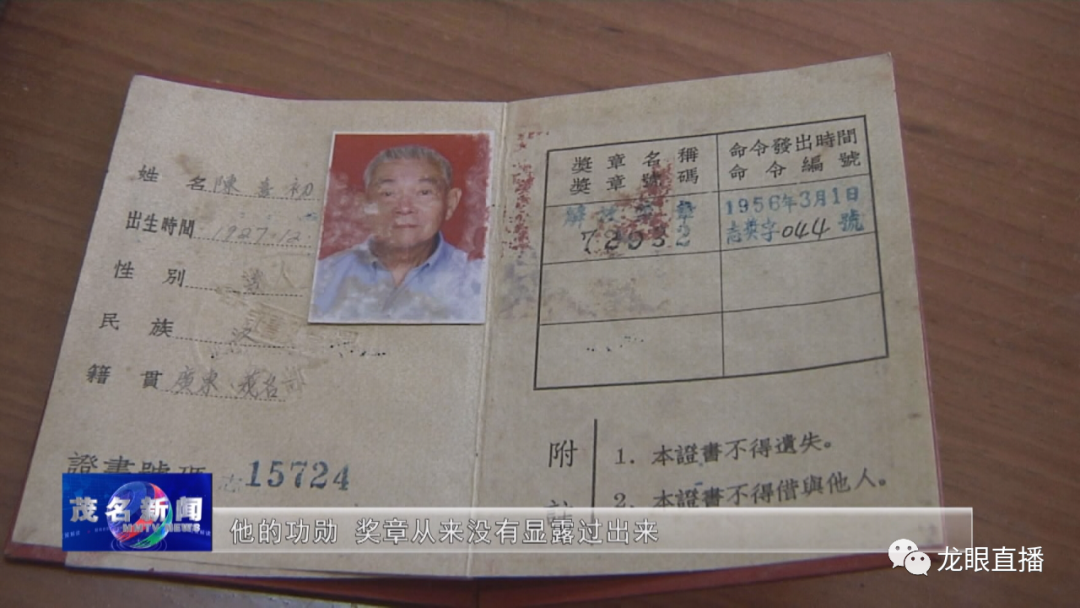 姓 名 陳喜初
出生時間 1927.12
性 别
民 族 汉
籍 貫 廣東 茂名
證書號碼 志 15724
獎 章 名 稱
獎 章 號 碼
命令發出時間
命 令 編 號
解放獎章
1956年3月1日
志獎字 044 號
附
1. 本證書不得遺失。
2. 本證書不得借與他人。
茂名新闻
MMTV NEWS
他的功勋 奖章从来没有显露过出来
龙眼直播